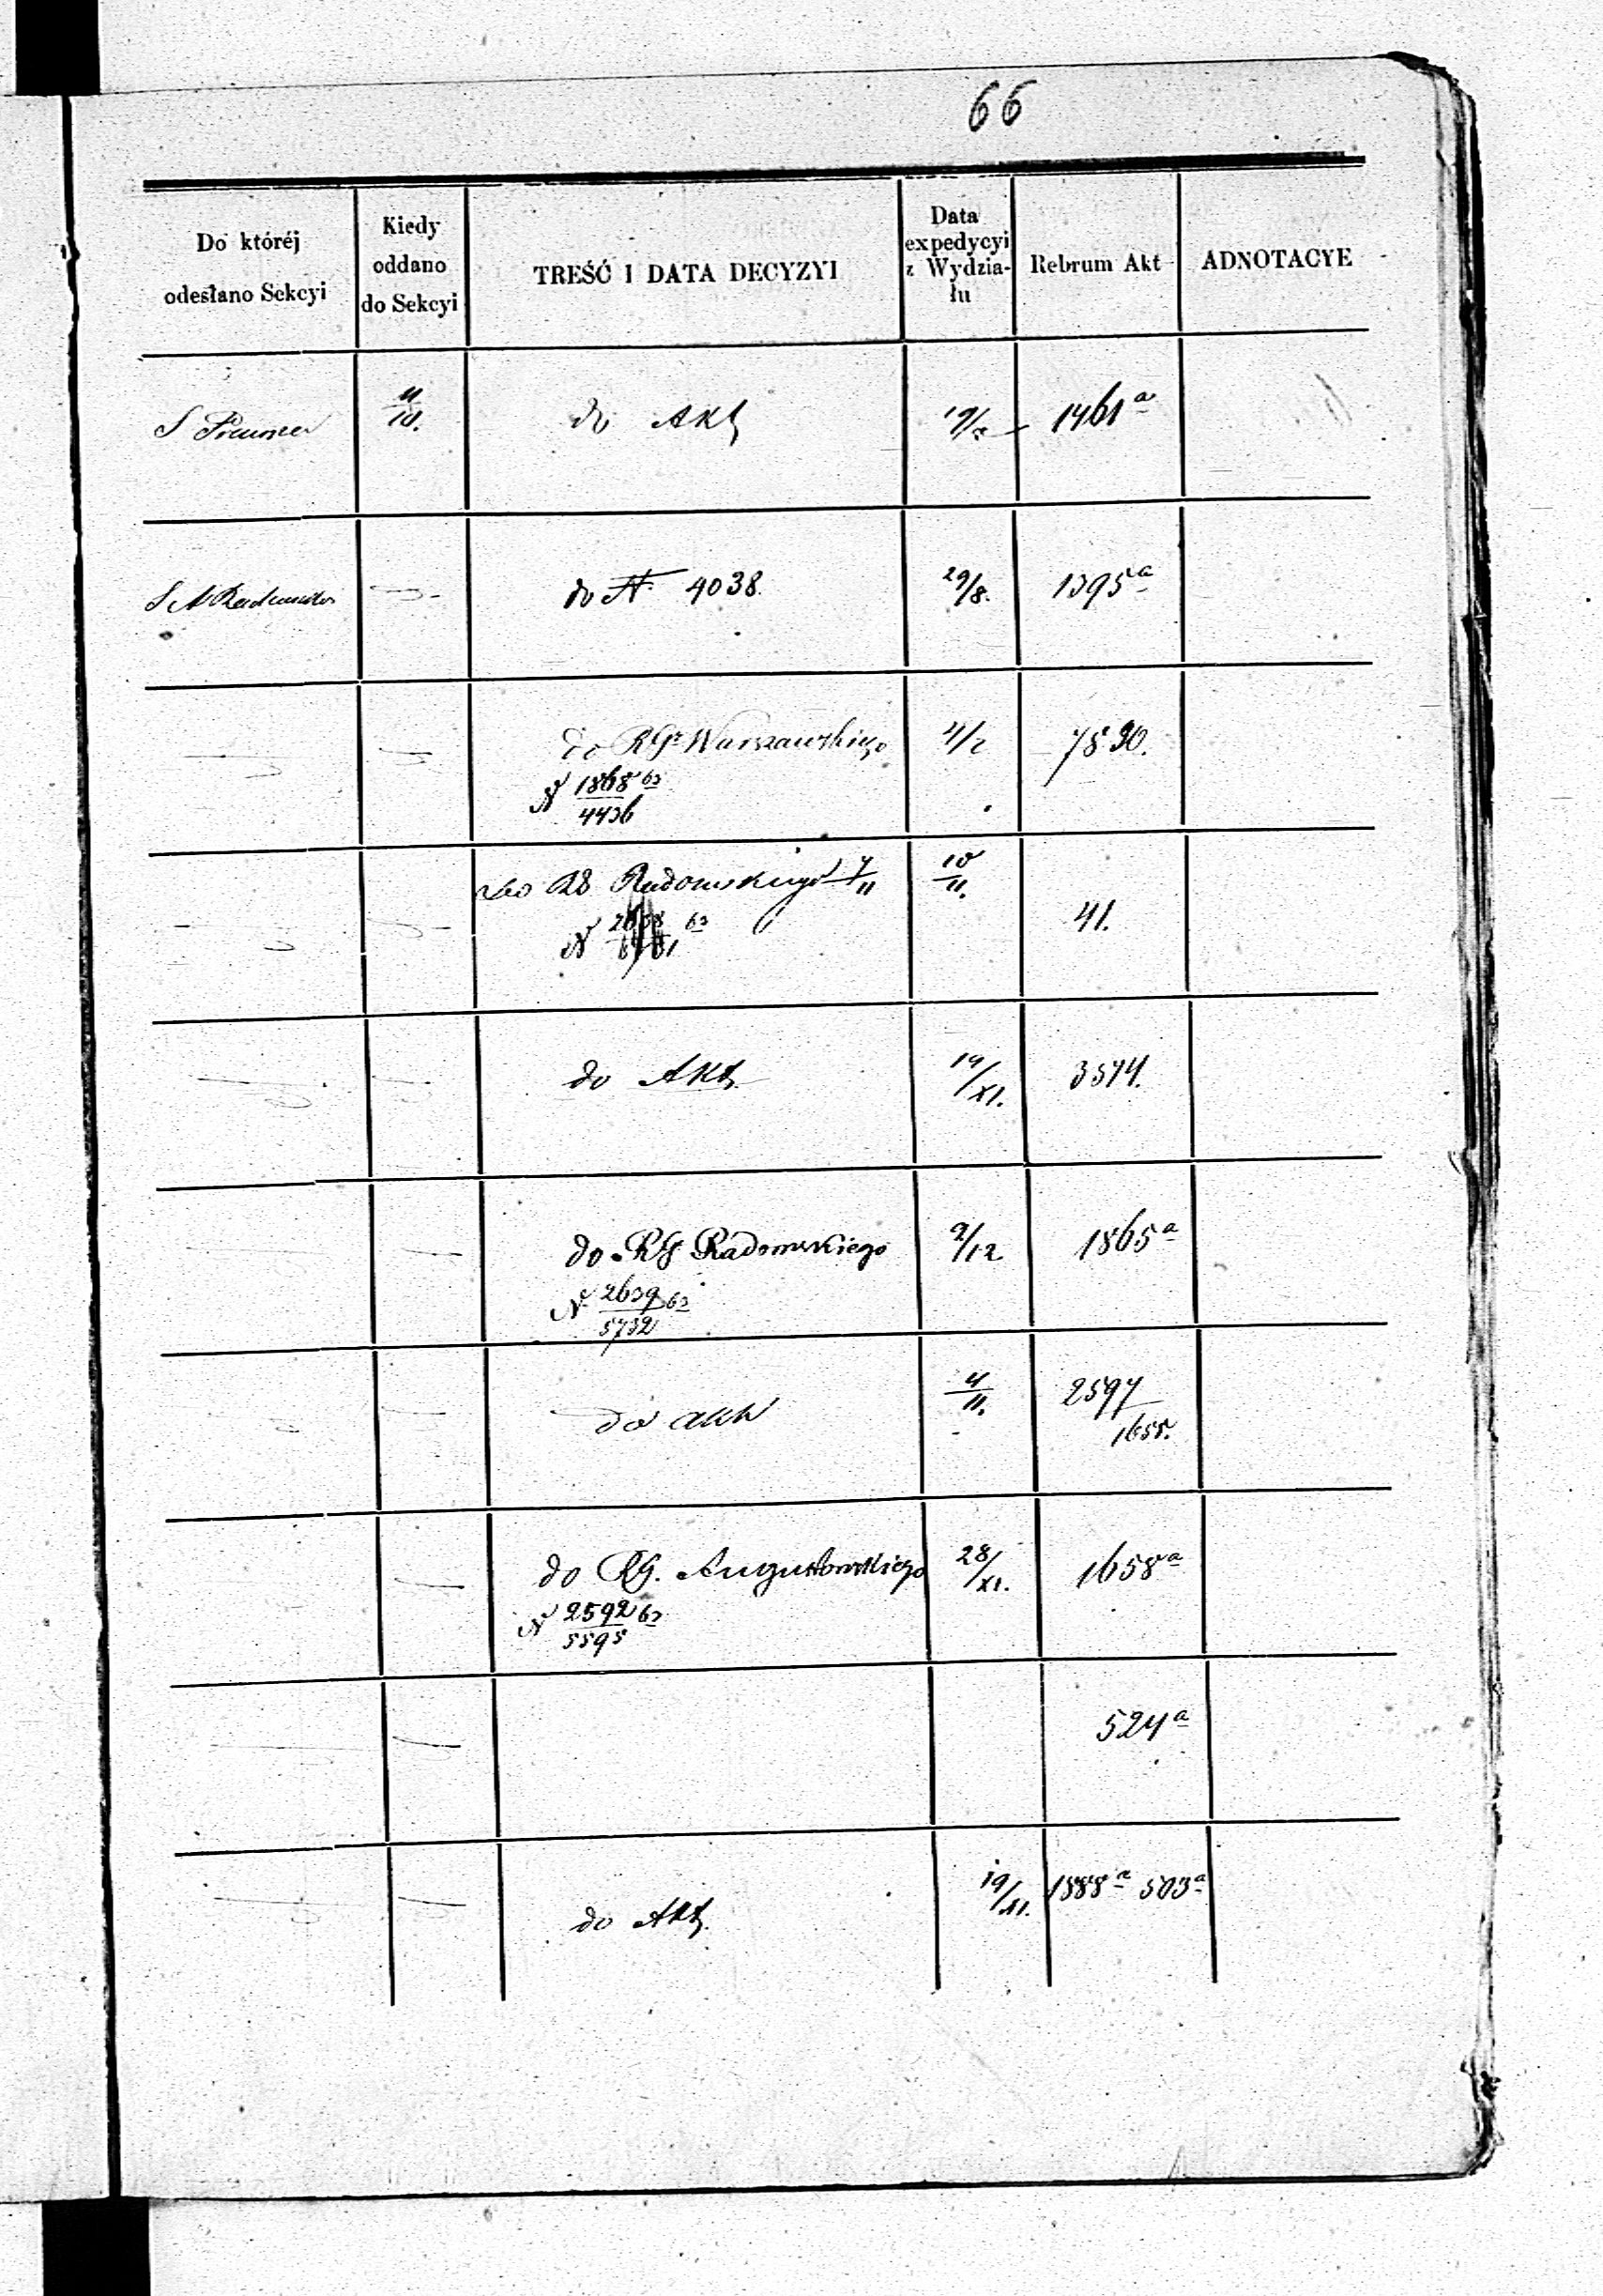 66
Do któréj
odesłano Sekcyi
Kiedy
oddano
do Sekcyi
TREŚĆ I DATA DECYZYI
Data
expedycyi
z Wydzia-
łu
Rebrum Akt
ADNOTACYE
do Akt
1461 a
do N. 4038.
29/8.
1395 a
do RGr Warszawskiego
N 1868 63
4436
4/2
7890.
do RG Radomskiego 7/11
N 63
10/11.
41.
do Akt
19/XI.
3574.
do RG Radomskiego
N 2639 63
5732
9/12
1865 a
do akt
4/11.
2597
1655.
do RG. Augustowskiego
N 2592 63
5595
28/XI.
1658 a
524 a
do Akt.
19/XI.
1888 a 503 a